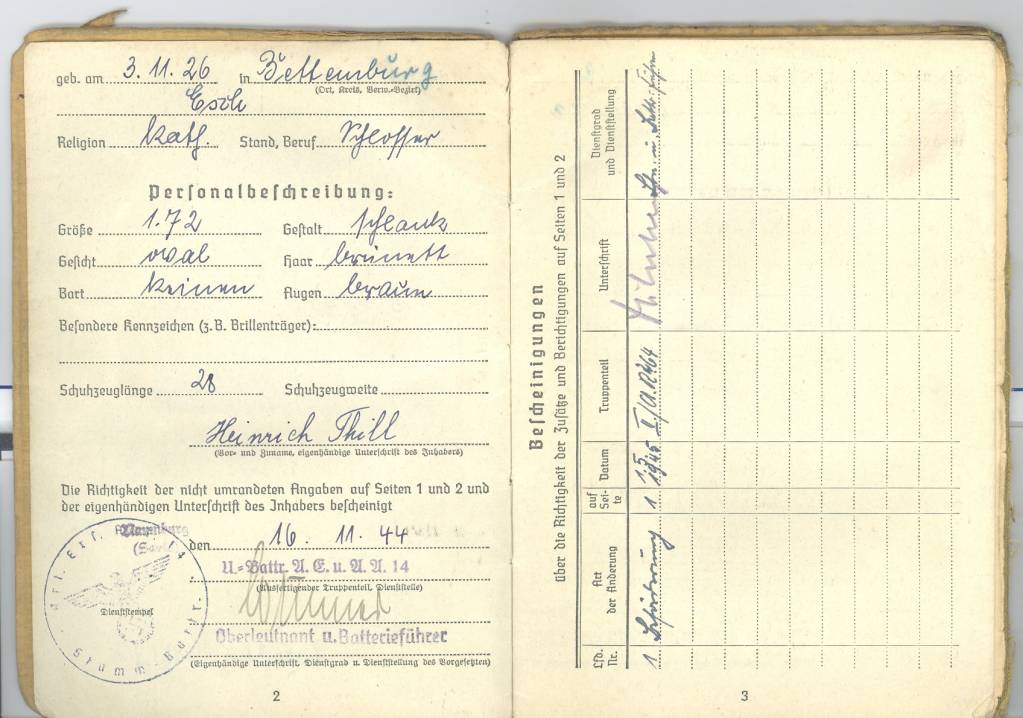 geb. am 3. 11. 26 in Bettemburg
(Ort, Kreis, Verw.-Bezirk)
Esch
Religion kath. Stand, Beruf Schlosser
Personalbeschreibung:
Größe 1.72 Gestalt schlank
Gesicht oval Haar brünett
Bart keinen Augen braun
Besondere Kennzeichen (z. B. Brillenträger):
Schuhzeuglänge 28 Schuhzeugweite
Heinrich Thill
(Vor- und Zuname, eigenhändige Unterschrift des Inhabers)
Die Richtigkeit der nicht umrandeten Angaben auf Seiten 1 und 2 und
der eigenhändigen Unterschrift des Inhabers bescheinigt
Naumburg
(Saale)
den 16. 11. 44
U.-Battr. A. E. u. A. A. 14
(Ausfertigender Truppenteil, Dienststelle)
Dienststempel
Stamm-Battr.
Oberleutnant u. Batterieführer
(Eigenhändige Unterschrift, Dienstgrad u. Dienststellung des Vorgesetzten)
2
Bescheinigungen
über die Richtigkeit der Zusätze und Berichtigungen auf Seiten 1 und 2
Lfd. Nr.
Art der Änderung
auf Seite
Datum
Truppenteil
Unterschrift
Dienstgrad und Dienststellung
1 Beförderung 1 1.5. 1945
3